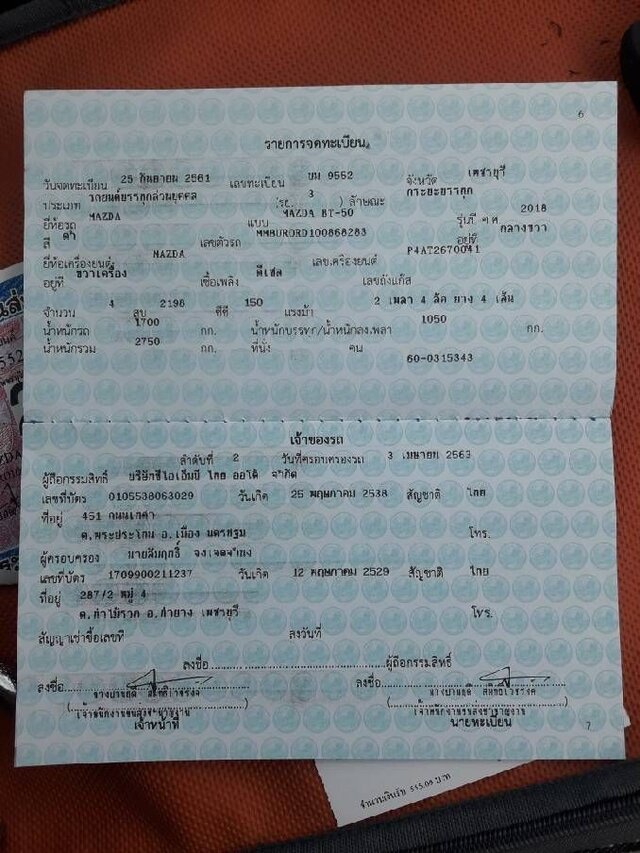 6
รายการจดทะเบียน
วันจดทะเบียน 25 กันยายน 2561 เลขทะเบียน บน 9552 จังหวัด เพชรบุรี
ประเภท รถยนต์บรรทุกส่วนบุคคล (รย. 3 ) ลักษณะ กระบะบรรทุก
ยี่ห้อรถ MAZDA แบบ MAZDA BT-50 รุ่นปี ค.ศ. 2018
สี ดำ เลขตัวรถ MM8UR0RD100868283 อยู่ที่ กลางขวา
ยี่ห้อเครื่องยนต์ MAZDA เลขเครื่องยนต์ P4AT2670041
อยู่ที่ ขวาเครื่อง เชื้อเพลิง ดีเซล เลขถังแก๊ส
จำนวน 4 สูบ 2198 ซีซี 150 แรงม้า 2 เพลา 4 ล้อ ยาง 4 เส้น
น้ำหนักรถ 1700 กก. น้ำหนักบรรทุก/น้ำหนักลงเพลา 1050 กก.
น้ำหนักรวม 2750 กก. ที่นั่ง คน
60-0315343
เจ้าของรถ
ลำดับที่ 2 วันที่ครอบครองรถ 3 เมษายน 2563
ผู้ถือกรรมสิทธิ์ บริษัทซีไอเอ็มบี ไทย ออโต้ จำกัด
เลขที่บัตร 0105538063029 วันเกิด 25 พฤษภาคม 2538 สัญชาติ ไทย
ที่อยู่ 451 ถนนเทศา
ต.พระประโทน อ.เมือง นครปฐม โทร.
ผู้ครอบครอง
เลขที่บัตร 1709900211237 วันเกิด 12 พฤษภาคม 2529 สัญชาติ ไทย
ที่อยู่ 287/2 หมู่ 4
อ.ท่ายาง เพชรบุรี โทร.
สัญญาเช่าซื้อเลขที่ ลงวันที่
ลงชื่อ ผู้ถือกรรมสิทธิ์
ลงชื่อ ลงชื่อ
เจ้าหน้าที่ นายทะเบียน
7
จำนวนเงินรับ 555.00 บาท